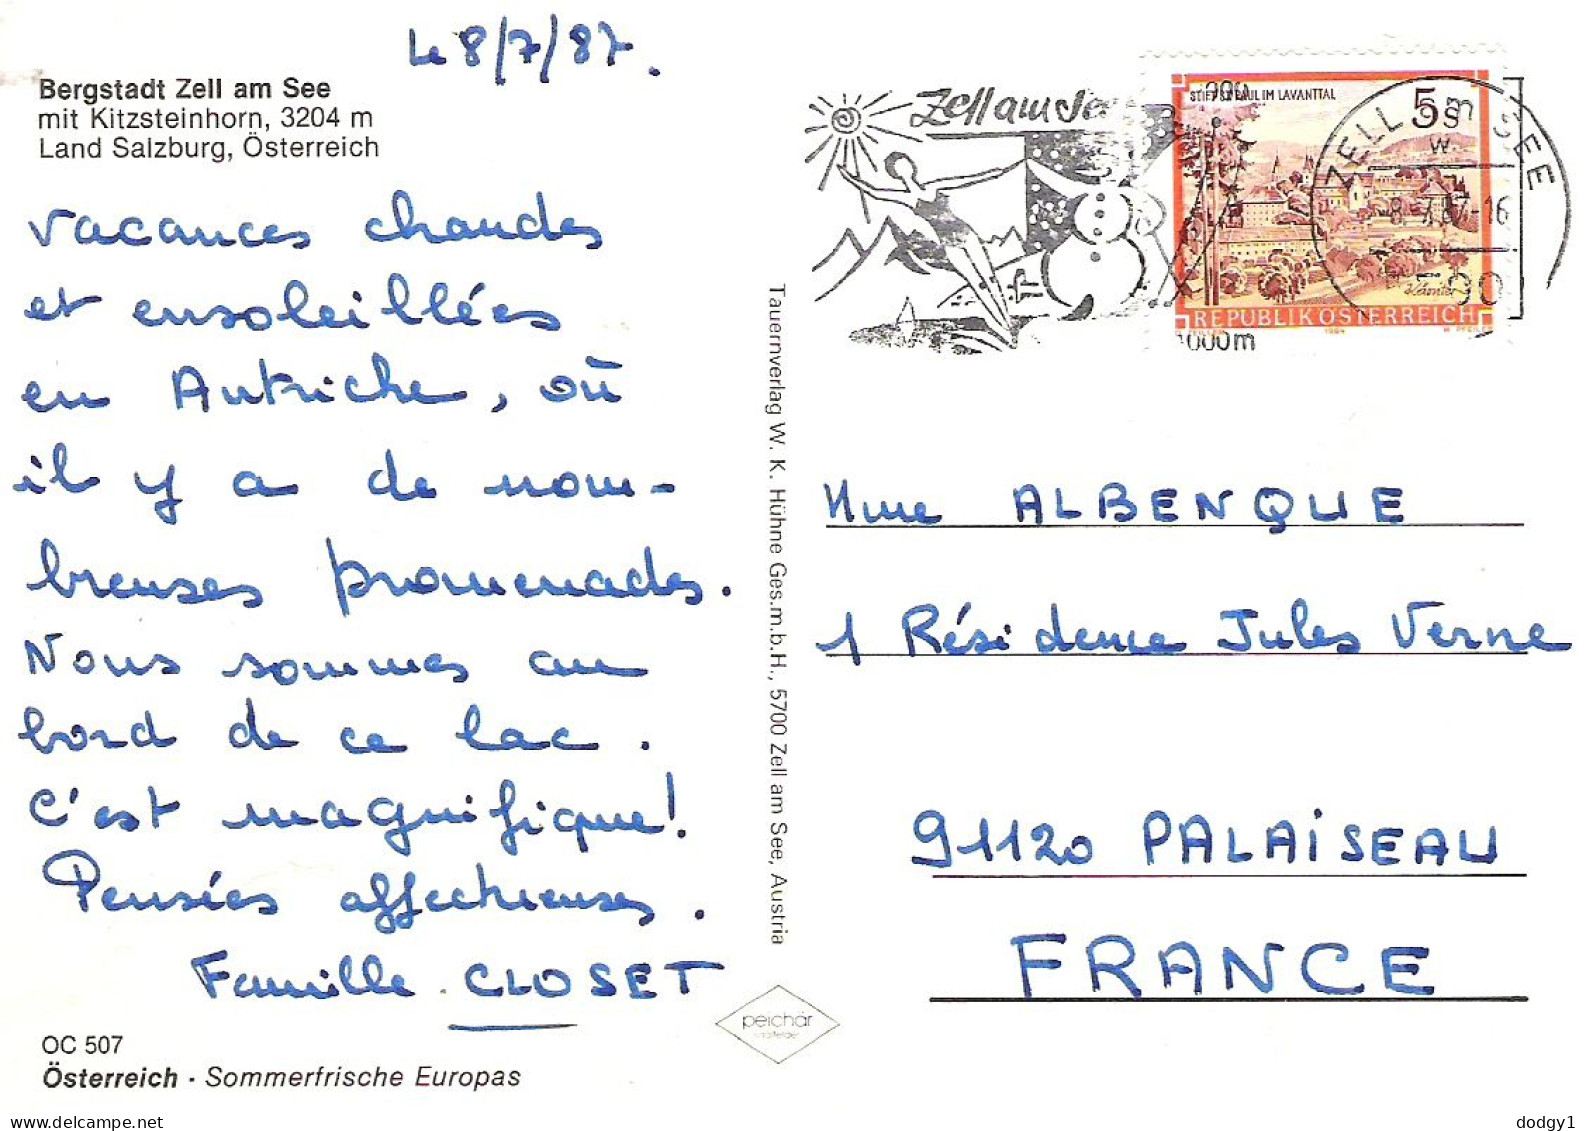 Le 8/7/87.
Bergstadt Zell am See
mit Kitzsteinhorn, 3204 m
Land Salzburg, Österreich
Vacances chaudes
et ensoleillées
en Autriche, où
il y a de nom-
breuses promenades.
Nous sommes au
bord de ce lac.
C'est magnifique!
Pensées affectueuses.
Famille CLOSET
OC 507
Österreich · Sommerfrische Europas
Tauernverlag W. K. Hühne Ges.m.b.H., 5700 Zell am See, Austria
peichär
Zell am See
1000m
STIFT ST. PAUL IM LAVANTTAL
5s
REPUBLIK ÖSTERREICH
1984
ZELL am SEE
w
8-7.87-16
5700
Mme ALBENQUE
1 Résidence Jules Verne
91120 PALAISEAU
FRANCE
www.delcampe.net
dodgy1